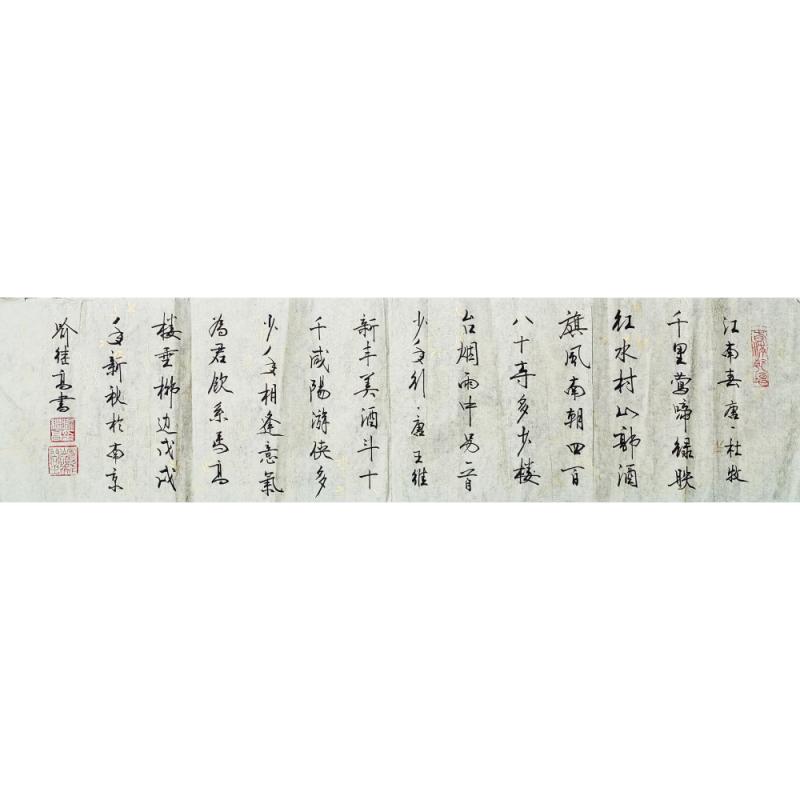 江南春唐、杜牧
千里莺啼绿映
红水村山郭酒
旗风南朝四百
八十寺多少楼
台烟雨中另一首
少年行、唐王维
新丰美酒斗十
千咸陽游侠多
少年相逢意氣
為君饮系马高
楼垂柳边戊戌
年新秋於南京
喻继高書